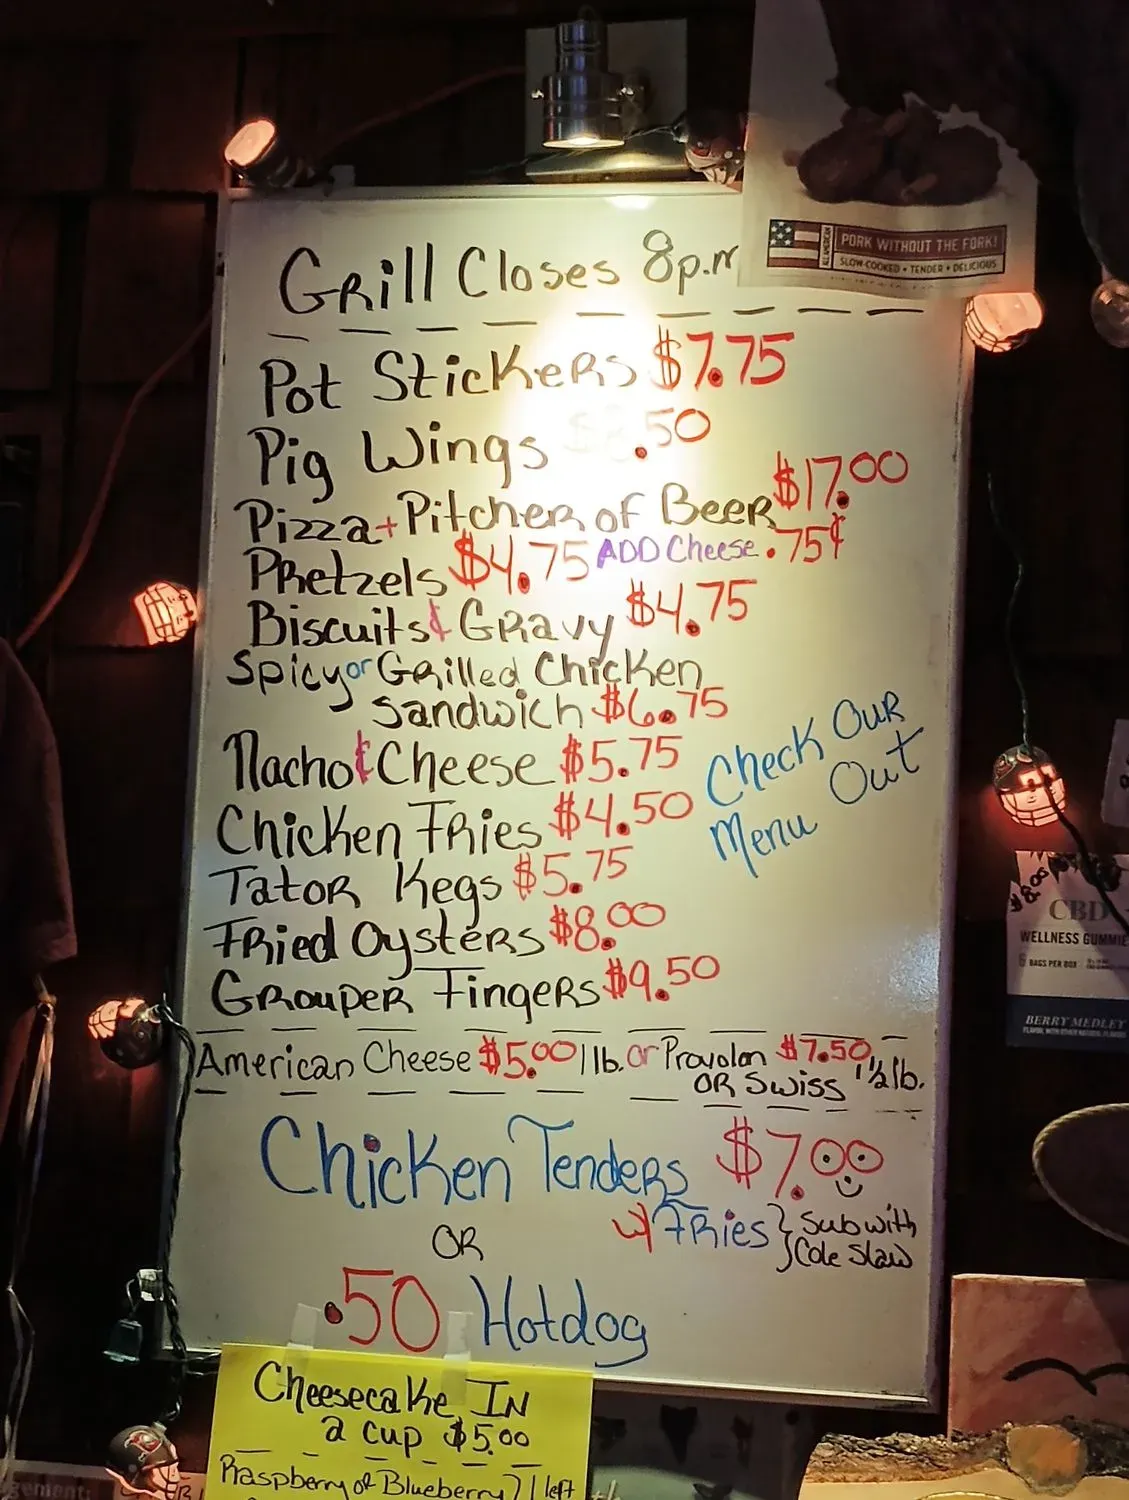 Grill Closes 8p.m
PORK WITHOUT THE FORK!
SLOW-COOKED • TENDER • DELICIOUS
ALL AMERICAN
Pot Stickers $7.75
Pig Wings .50
Pizza + Pitcher of Beer $17.00
Pretzels $4.75 ADD Cheese .75¢
Biscuits & Gravy $4.75
Spicy or Grilled Chicken
Sandwich $6.75
Nacho & Cheese $5.75
Check Our
Menu Out
Chicken Fries $4.50
Tator Kegs $5.75
Fried Oysters $8.00
Grouper Fingers $9.50
American Cheese $5.00 1 lb. or Provolon $7.50
OR Swiss 1 1/2 lb.
Chicken Tenders $7.00
w/ Fries } Sub with
Cole Slaw
OR
.50 Hotdog
Cheesecake IN
a cup $5.00
Raspberry or Blueberry 1 left
$8.00
CBD
WELLNESS GUMMIE
6 BAGS PER BOX
BERRY MEDLEY